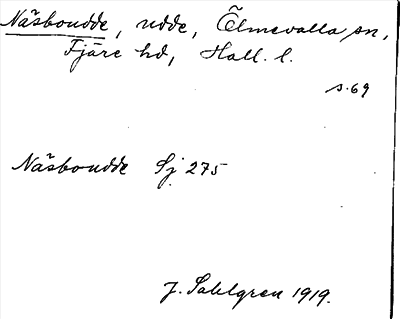 Näsboudde, udde, Ölmevalla sn,
Fjäre hd, Hall. l.
s. 69
Näsboudde Sj 275
J. Sahlgren 1919.